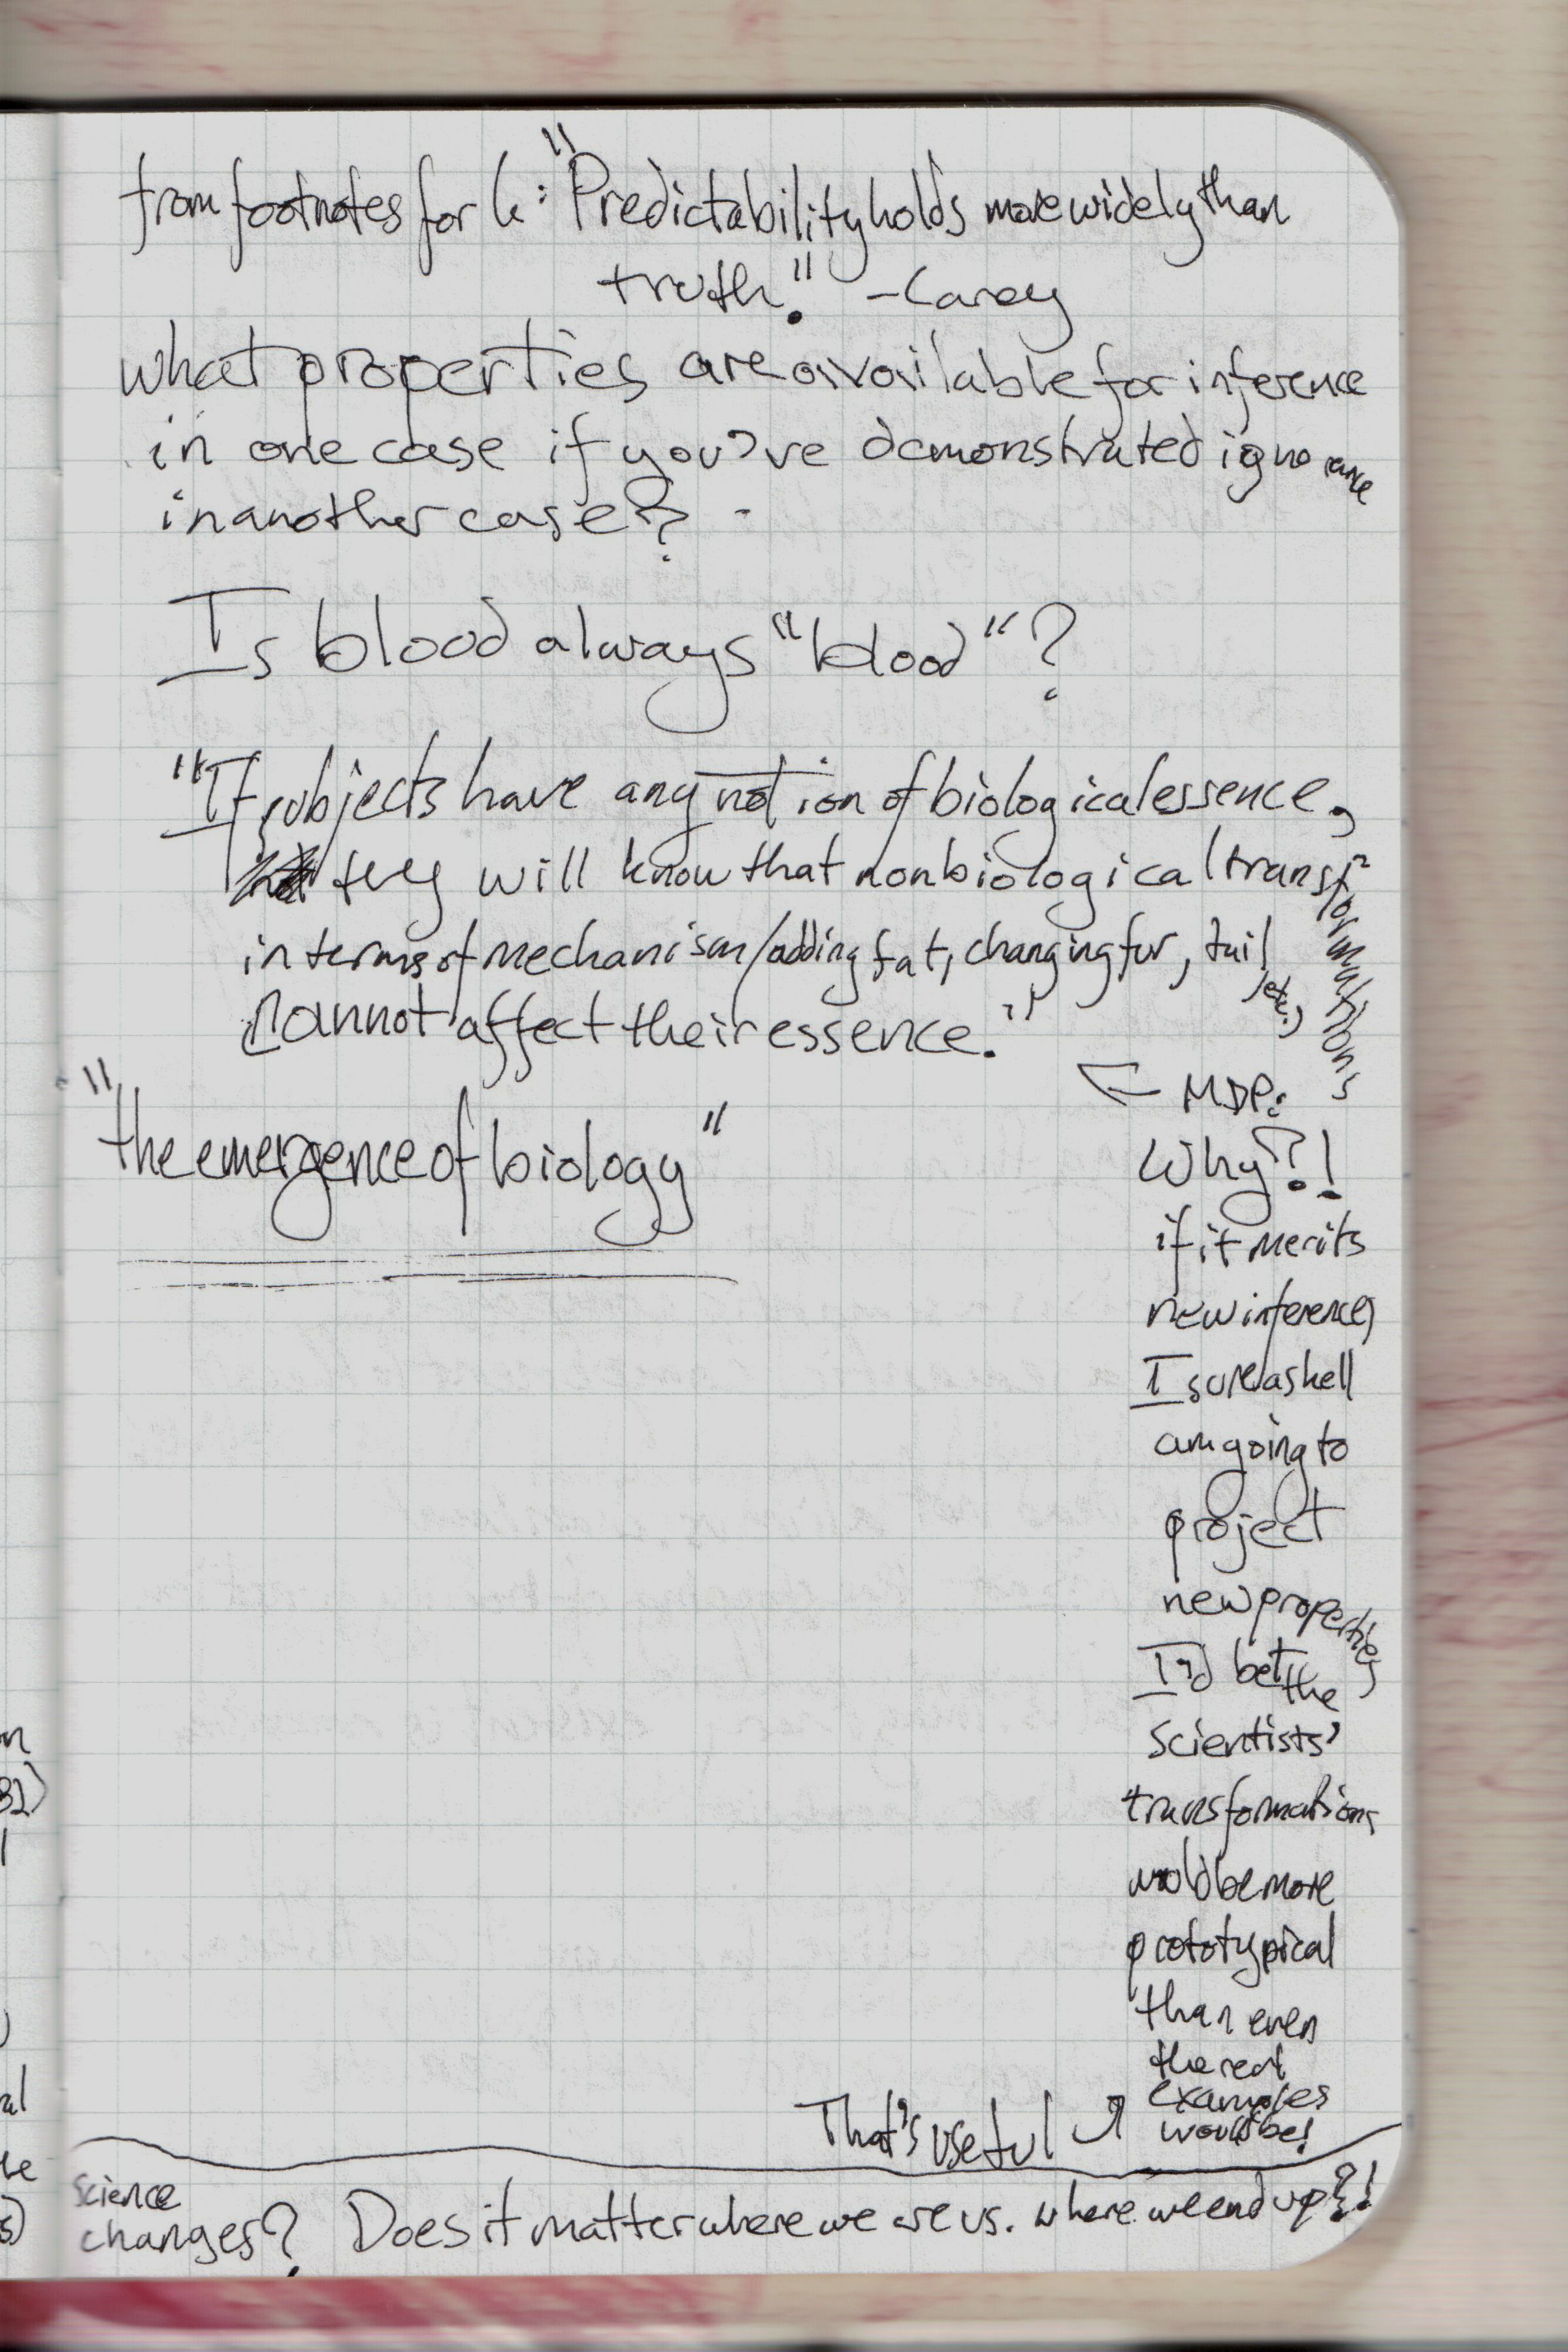 from footnotes for 6: "Predictability holds more widely than
truth." -Carey
what properties are available for inference
in one case if you've demonstrated ignorance
in another case?
Is blood always "blood"?
"If subjects have any notion of biological essence,
they will know that nonbiological transformations
in terms of mechanism/adding fat, changing fur, tail, etc.,
cannot affect their essence."
"the emergence of biology"
← MDP:
Why?!
if it merits
new inferences
I sure as hell
am going to
project
new properties
I'd bet the
scientists'
transformations
would be more
prototypical
than even
the real
examples
would be!
That's useful
Science
changes? Does it matter where we are vs. where we end up?!
on
al